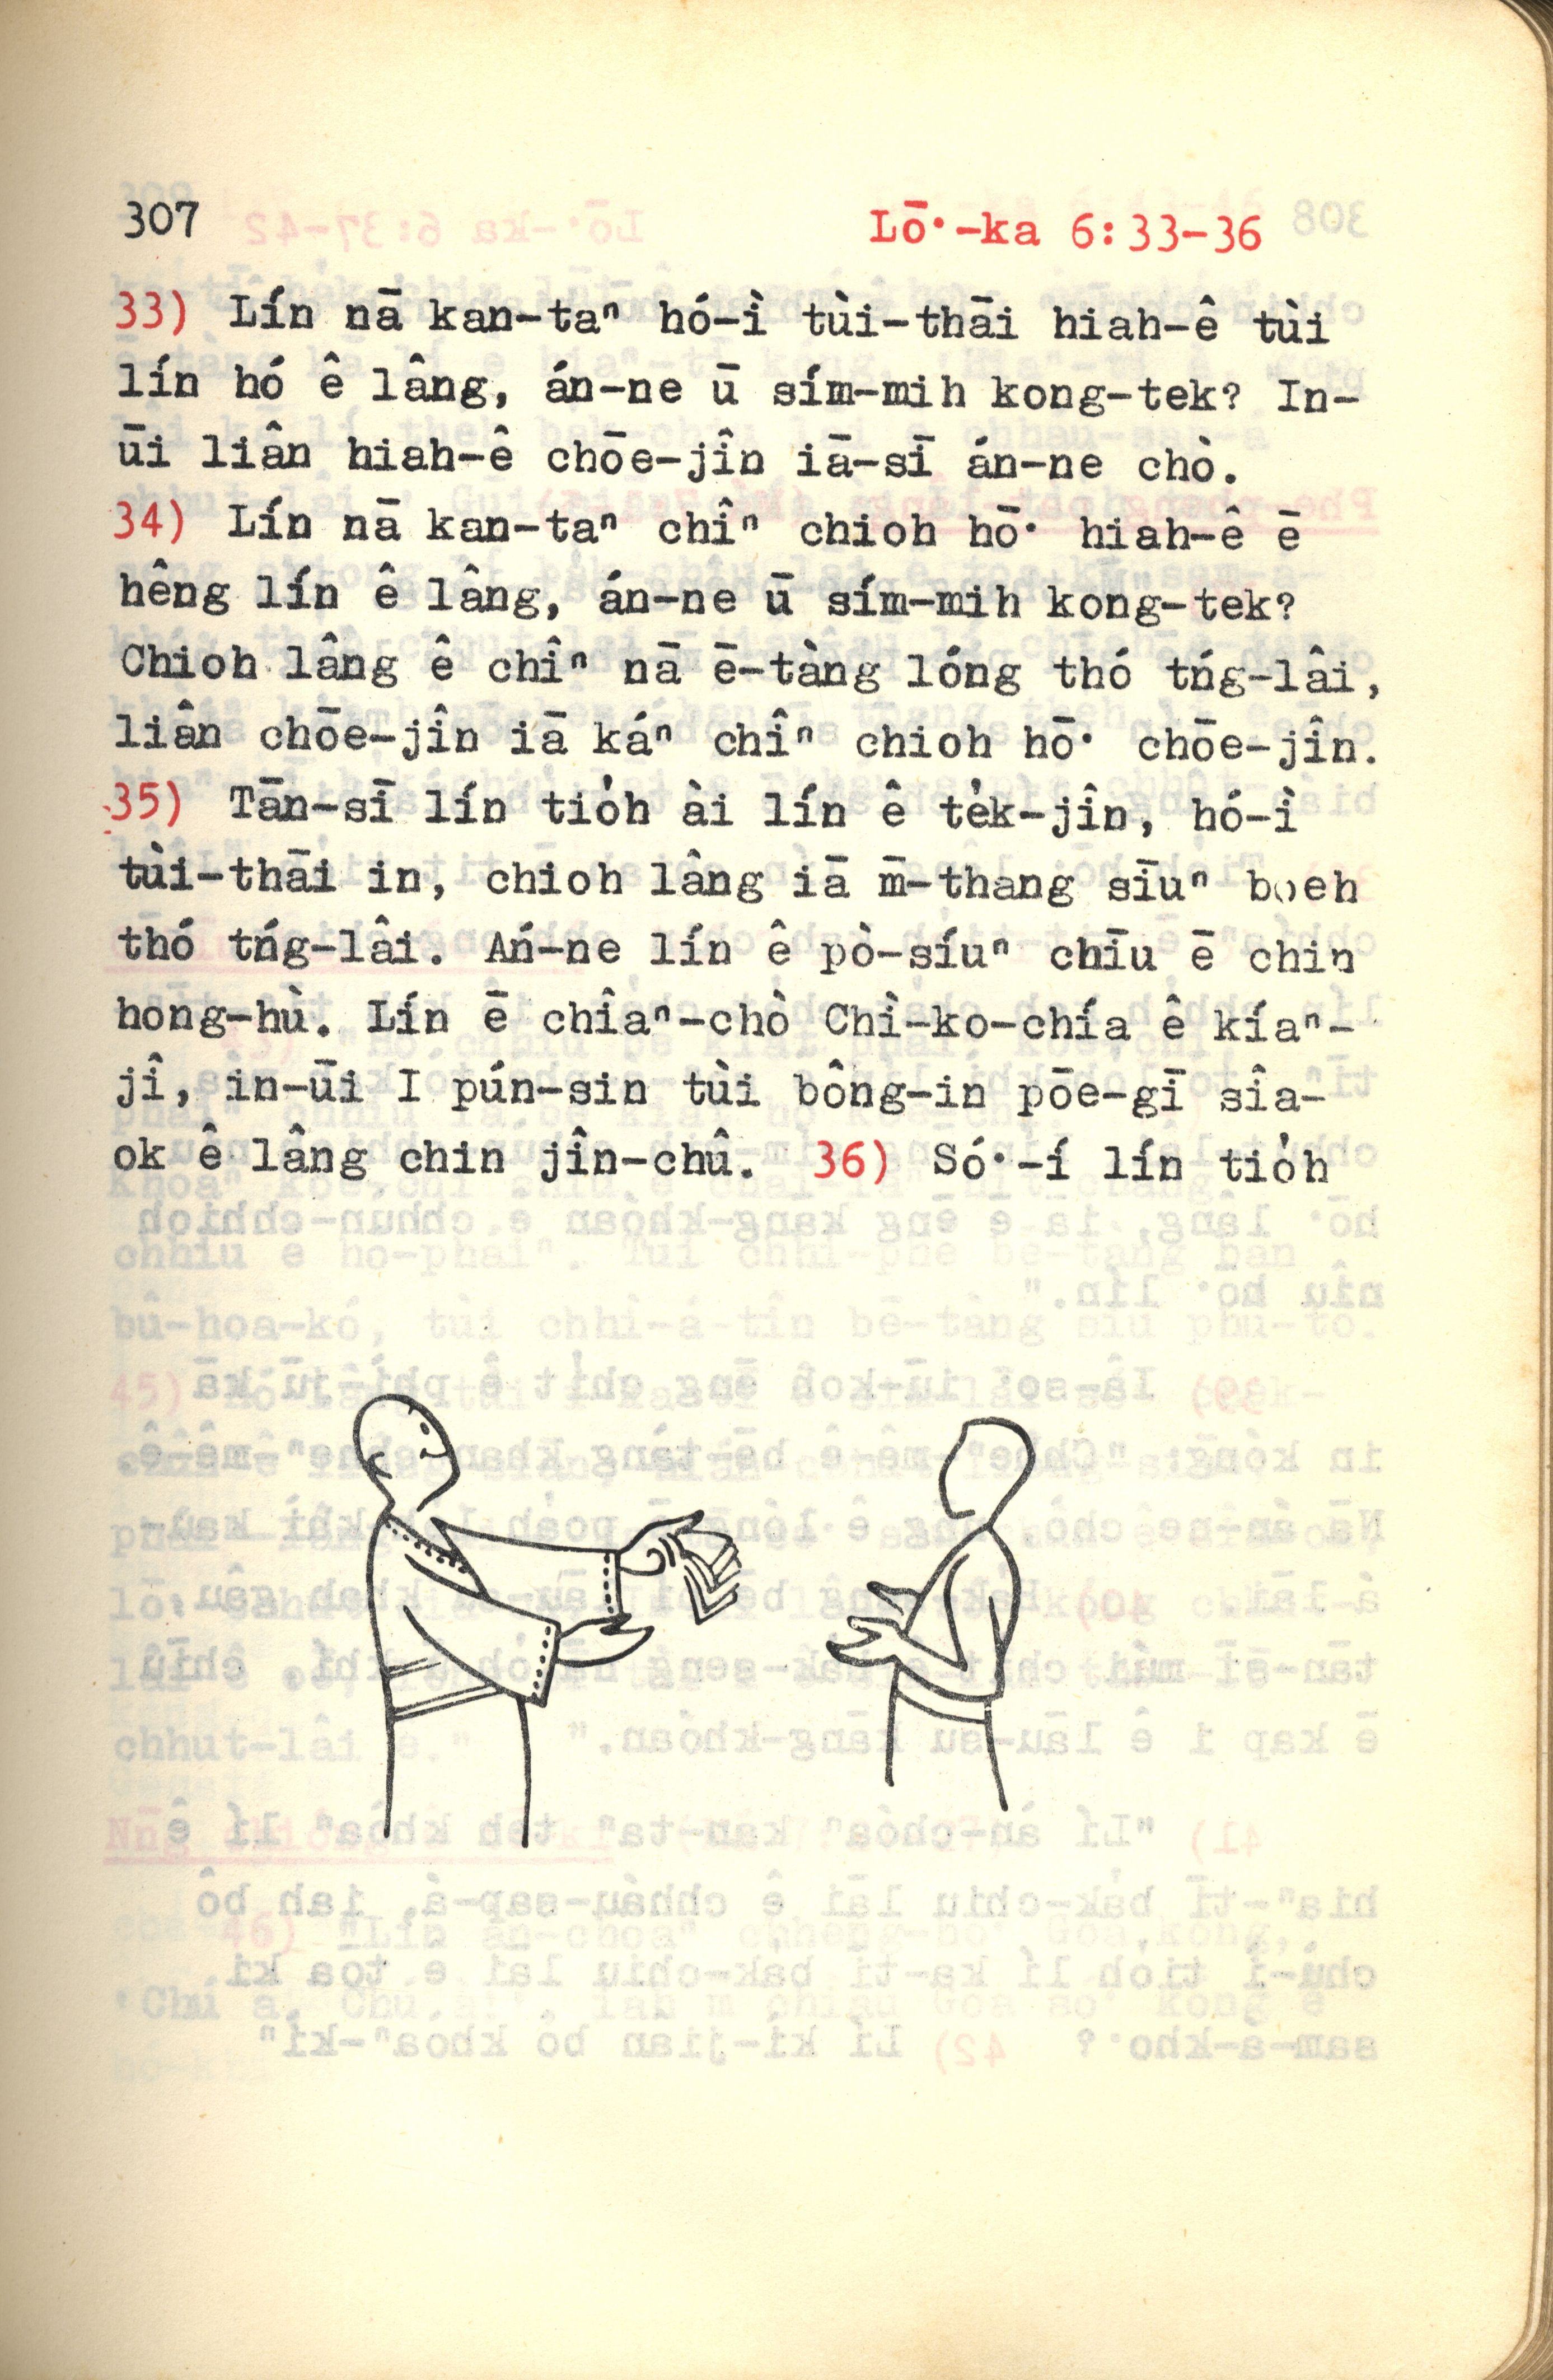 307 Lō͘-ka 6:33-36
33) Lín nā kan-taⁿ hó-ì tùi-thāi hiah-ê tùi
lín hó ê lâng, án-ne ū sím-mih kong-tek? In-
ūi liân hiah-ê chōe-jîn iā-sī án-ne chò.
34) Lín nā kan-taⁿ chîⁿ chioh hō͘ hiah-ê ē
hêng lín ê lâng, án-ne ū sím-mih kong-tek?
Chioh lâng ê chîⁿ nā ē-tàng lóng thó tńg-lâi,
liân chōe-jîn iā káⁿ chîⁿ chioh hō͘ chōe-jîn.
35) Tān-sī lín tio̍h ài lín ê te̍k-jîn, hó-ì
tùi-thāi in, chioh lâng iā m̄-thang sīuⁿ boeh
thó tńg-lâi. Án-ne lín ê pò-síuⁿ chīu ē chin
hong-hù. Lín ē chîaⁿ-chò Chì-ko-chía ê kíaⁿ-
jî, in-ūi I pún-sin tùi bông-in pōe-gī sîa-
ok ê lâng chin jîn-chû. 36) Só͘-í lín tio̍h